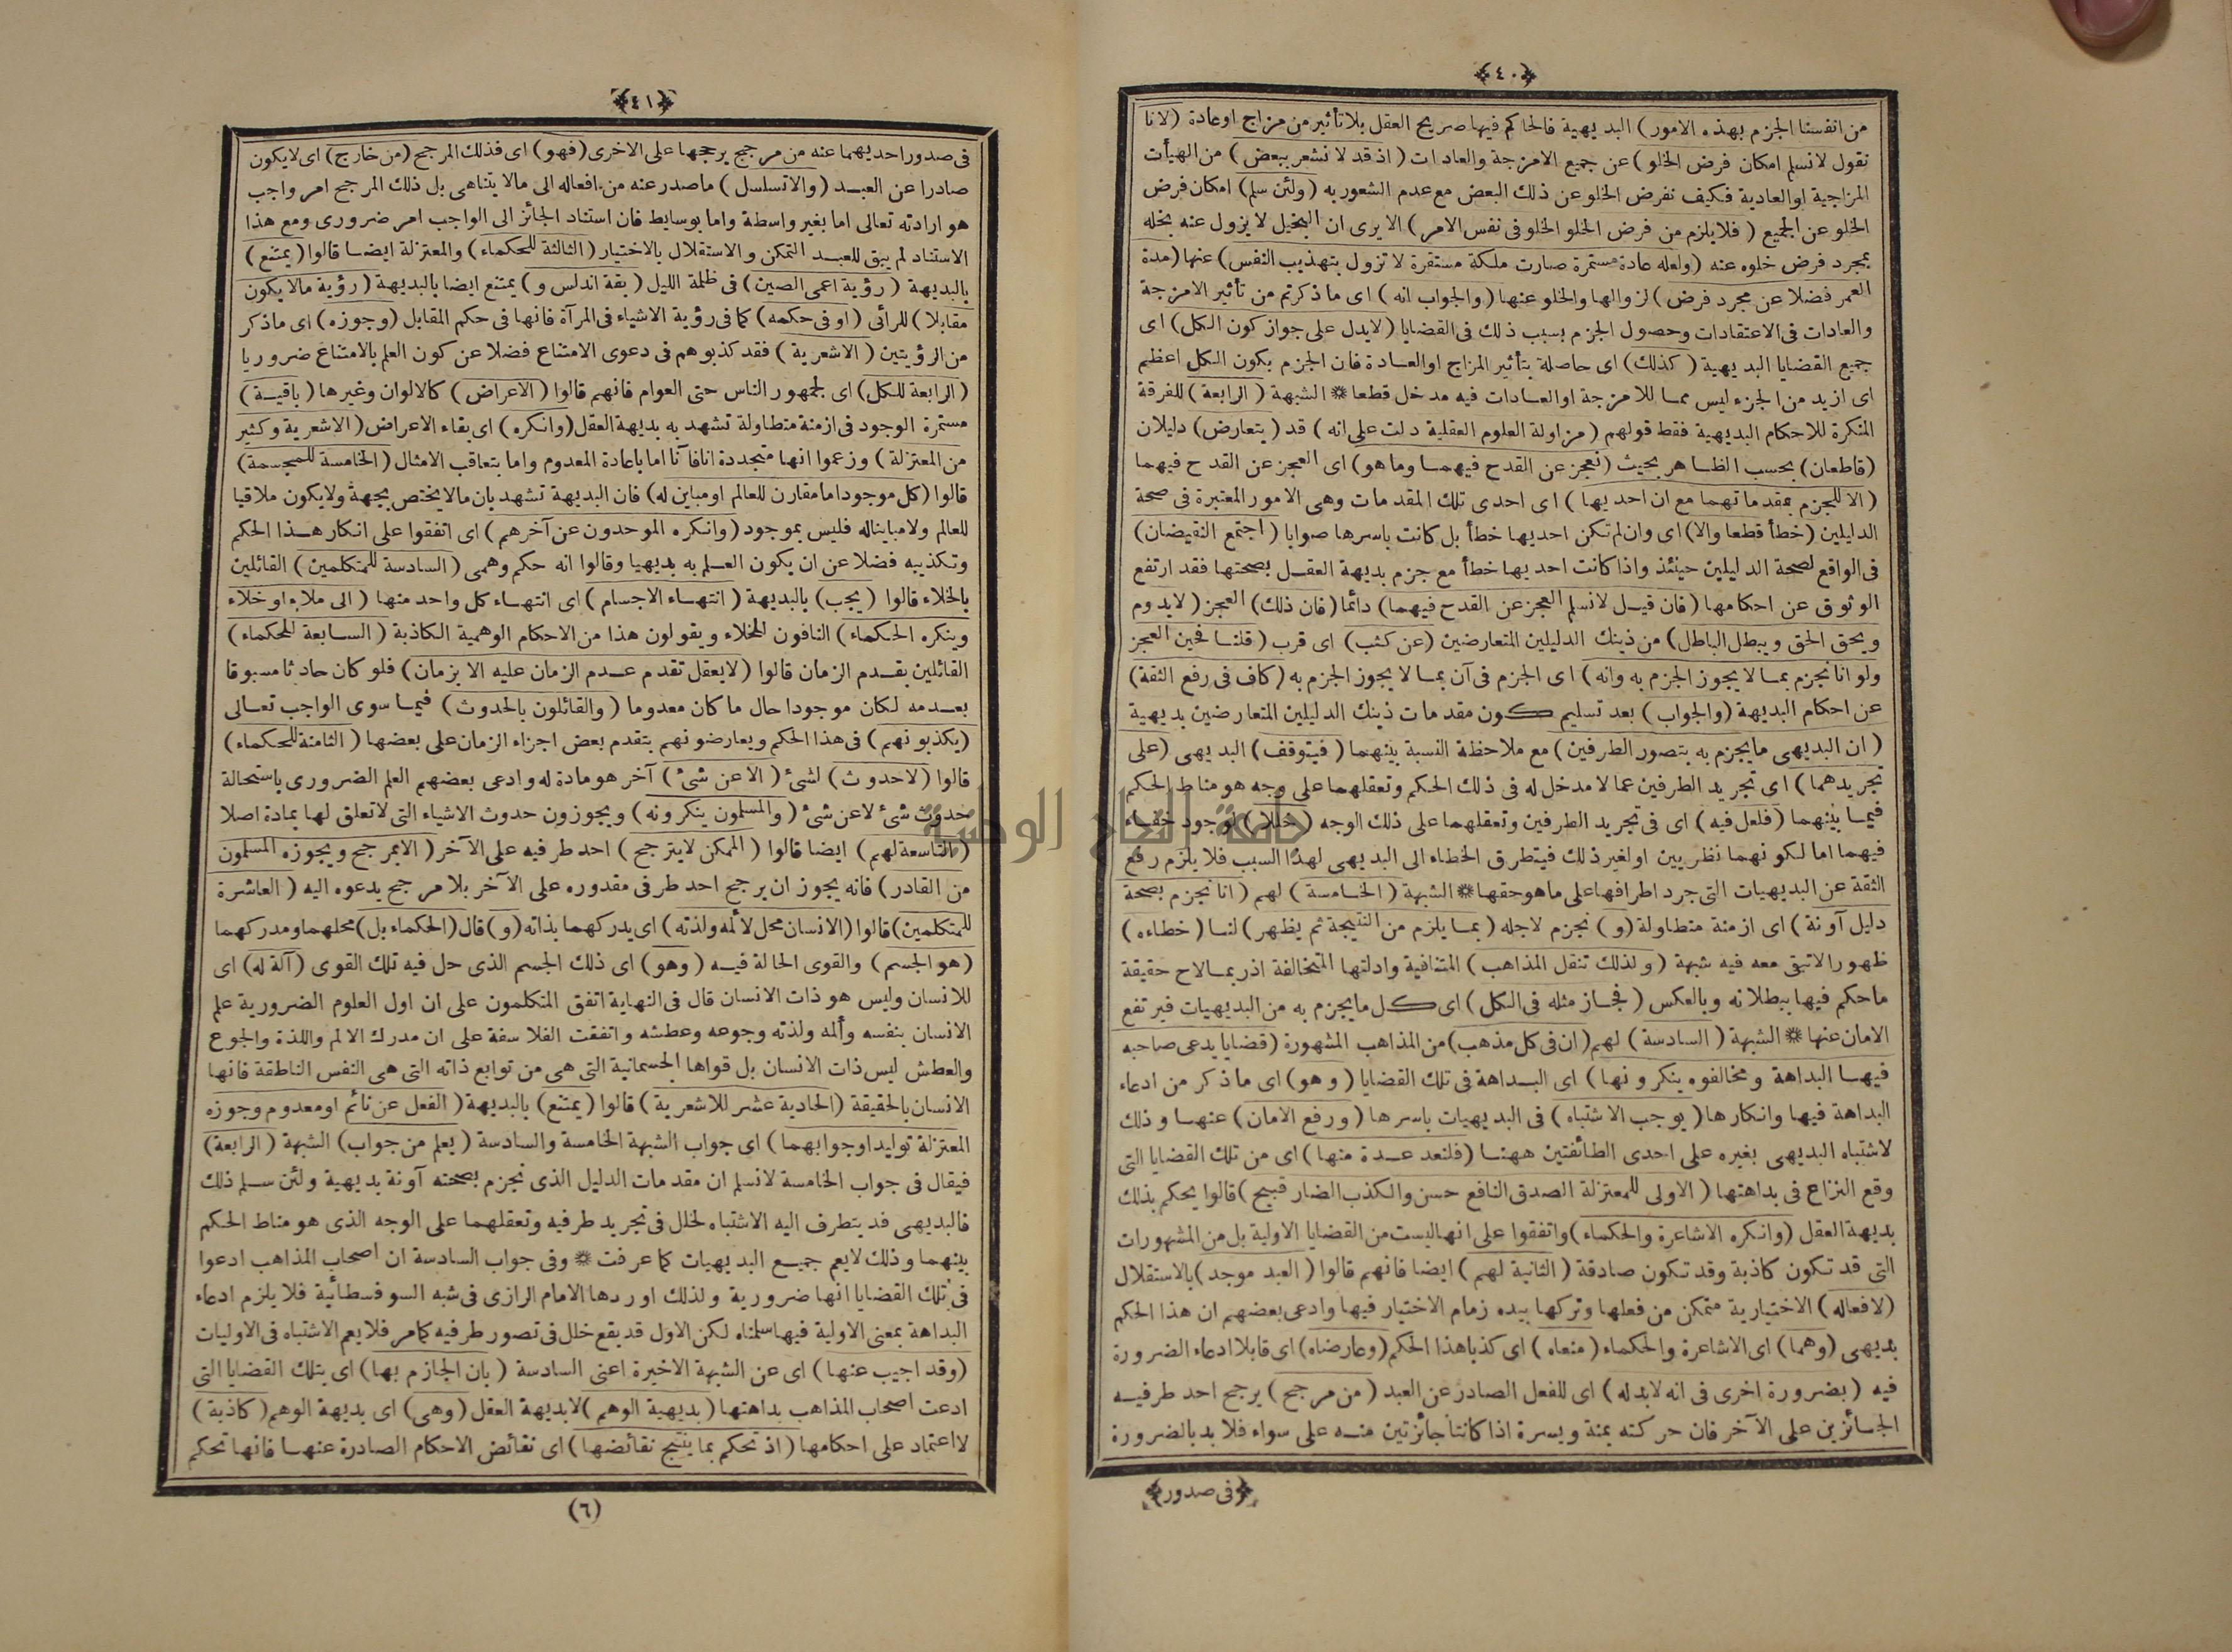 ﴿٤٠﴾
من انفسنا الجزم بهذه الامور) البديهية فالحاكم فيها صريح العقل بلا تأثير من مزاج او عادة (لانا
نقول لا نسلم امكان فرض الخلو) عن جميع الامزجة والعادات (اذ قد لا نشعر ببعض) من الهيأت
المزاجية او العادية فكيف نفرض الخلو عن ذلك البعض مع عدم الشعور به (ولئن سلم) امكان فرض
الخلو عن الجميع (فلا يلزم من فرض الخلو الخلو فى نفس الامر) الا يرى ان البخيل لا يزول عنه بخله
بمجرد فرض خلوه عنه (ولعله عادة مستمرة صارت ملكة مستقرة لا تزول بتهذيب النفس) عنها (مدة
العمر فضلا عن مجرد فرض) لزوالها والخلو عنها (والجواب انه) اى ما ذكرتم من تأثير الامزجة
والعادات فى الاعتقادات وحصول الجزم بسبب ذلك فى القضايا (لا يدل على جواز كون الكل) اى
جميع القضايا البديهية (كذلك) اى حاصلة بتأثير المزاج او العادة فان الجزم بكون الكل اعظم
اى ازيد من الجزء ليس مما للامزجة او العادات فيه مدخل قطعا * الشبهة (الرابعة) للفرقة
المنكرة للاحكام البديهية فقط قولهم (مزاولة العلوم العقلية دلت على انه) قد (يتعارض) دليلان
(قاطعان) بحسب الظاهر بحيث (نعجز عن القدح فيهما وما هو) اى العجز عن القدح فيهما
(الا للجزم بمقدماتهما مع ان احديها) اى احدى تلك المقدمات وهى الامور المعتبرة فى صحة
الدليلين (خطأ قطعا والا) اى وان لم تكن احديها خطأ بل كانت باسرها صوابا (اجتمع النقيضان)
فى الواقع لصحة الدليلين حينئذ واذا كانت احديها خطأ مع جزم بديهة العقل بصحتها فقد ارتفع
الوثوق عن احكامها (فان قيل لا نسلم العجز عن القدح فيهما) دائما (فان ذلك) العجز (لا يدوم
ويحق الحق ويبطل الباطل) من ذينك الدليلين المتعارضين (عن كثب) اى قرب (قلنا فحين العجز
ولو انا نجزم بما لا يجوز الجزم به وانه) اى الجزم فى آن بما لا يجوز الجزم به (كاف فى رفع الثقة)
عن احكام البديهة (والجواب) بعد تسليم كون مقدمات ذينك الدليلين المتعارضين بديهية
(ان البديهى ما يجزم به بتصور الطرفين) مع ملاحظة النسبة بينهما (فيتوقف) البديهى (على
تجريدهما) اى تجريد الطرفين عما لا مدخل له فى ذلك الحكم وتعقلهما على وجه هو مناط الحكم
فيما بينهما (فلعل فيه) اى فى تجريد الطرفين وتعقلهما على ذلك الوجه (خللا) لوجود خفاء
فيهما اما لكونهما نظريين او لغير ذلك فيتطرق الخطاء الى البديهى لهذا السبب فلا يلزم رفع
الثقة عن البديهيات التى جرد اطرافها على ما هو حقها * الشبهة (الخامسة) لهم (انا نجزم بصحة
دليل آونة) اى ازمنة متطاولة (و) نجزم لاجله (بما يلزم من النتيجة ثم يظهر) لنا (خطاءه)
ظهورا لا تبقى معه فيه شبهة (ولذلك تنقل المذاهب) المتنافية وادلتها المتخالفة اذ ربما لاح حقيقة
ما حكم فيها ببطلانه وبالعكس (فجاز مثله فى الكل) اى كل ما يجزم به من البديهيات فيرتفع
الامان عنها * الشبهة (السادسة) لهم (ان فى كل مذهب) من المذاهب المشهورة (قضايا يدعى صاحبه
فيها البداهة ومخالفوه ينكرونها) اى البداهة فى تلك القضايا (وهو) اى ما ذكر من ادعاء
البداهة فيها وانكارها (يوجب الاشتباه) فى البديهيات باسرها (ورفع الامان) عنها وذلك
لاشتباه البديهى بغيره على احدى الطائفتين ههنا (فلنعد عدة منها) اى من تلك القضايا التى
وقع النزاع فى بداهتها (الاولى للمعتزلة الصدق النافع حسن والكذب الضار قبيح) قالوا يحكم بذلك
بديهة العقل (وانكره الاشاعرة والحكماء) واتفقوا على انها ليست من القضايا الاولية بل من المشهورات
التى قد تكون كاذبة وقد تكون صادقة (الثانية لهم) ايضا فانهم قالوا (العبد موجد) بالاستقلال
(لافعاله) الاختيارية متمكن من فعلها وتركها بيده زمام الاختيار فيها وادعى بعضهم ان هذا الحكم
بديهى (وهما) اى الاشاعرة والحكماء (منعاه) اى كذبا هذا الحكم (وعارضاه) اى قابلا ادعاء الضرورة
فيه (بضرورة اخرى فى انه لا بد له) اى للفعل الصادر عن العبد (من مرجح) يرجح احد طرفيه
الجائزين على الآخر فان حركته يمنة ويسرة اذا كانتا جائزتين منه على سواء فلا بد بالضرورة
﴿فى صدور﴾
﴿٤١﴾
فى صدور احديهما عنه من مرجح يرجحها على الاخرى (فهو) اى فذلك المرجح (من خارج) اى لا يكون
صادرا عن العبد (والا تسلسل) ما صدر عنه من افعاله الى ما لا يتناهى بل ذلك المرجح امر واجب
هو ارادته تعالى اما بغير واسطة واما بوسايط فان استناد الجائز الى الواجب امر ضرورى ومع هذا
الاستناد لم يبق للعبد التمكن والاستقلال بالاختيار (الثالثة للحكماء) والمعتزلة ايضا قالوا (يمتنع)
بالبديهة (رؤية اعمى الصين) فى ظلمة الليل (بقة اندلس و) يمتنع ايضا بالبديهة (رؤية ما لا يكون
مقابلا) للرائى (او فى حكمه) كما فى رؤية الاشياء فى المرآة فانها فى حكم المقابل (وجوزه) اى ما ذكر
من الرؤيتين (الاشعرية) فقد كذبوهم فى دعوى الامتناع فضلا عن كون العلم بالامتناع ضروريا
(الرابعة للكل) اى لجمهور الناس حتى العوام فانهم قالوا (الاعراض) كالالوان وغيرها (باقية)
مستمرة الوجود فى ازمنة متطاولة تشهد به بديهة العقل (وانكره) اى بقاء الاعراض (الاشعرية وكثير
من المعتزلة) وزعموا انها متجددة آنا فآنا اما باعادة المعدوم واما بتعاقب الامثال (الخامسة للمجسمة)
قالوا (كل موجود اما مقارن للعالم او مباين له) فان البديهة تشهد بان ما لا يختص بجهة ولا يكون ملاقيا
للعالم ولا مباينا له فليس بموجود (وانكره الموحدون عن آخرهم) اى اتفقوا على انكار هذا الحكم
وتكذيبه فضلا عن ان يكون العلم به بديهيا وقالوا انه حكم وهمى (السادسة للمتكلمين) القائلين
بالخلاء قالوا (يجب) بالبديهة (انتهاء الاجسام) اى انتهاء كل واحد منها (الى ملاء او خلاء
وينكره الحكماء) النافون للخلاء ويقولون هذا من الاحكام الوهمية الكاذبة (السابعة للحكماء)
القائلين بقدم الزمان قالوا (لا يعقل تقدم عدم الزمان عليه الا بزمان) فلو كان حادثا مسبوقا
بعدمه لكان موجودا حال ما كان معدوما (والقائلون بالحدوث) فيما سوى الواجب تعالى
(يكذبونهم) فى هذا الحكم ويعارضونهم بتقدم بعض اجزاء الزمان على بعضها (الثامنة للحكماء)
قالوا (لا حدوث) لشئ (الا عن شئ) آخر هو مادة له وادعى بعضهم العلم الضرورى باستحالة
حدوث شئ لا عن شئ (والمسلمون ينكرونه) ويجوزون حدوث الاشياء التى لا تعلق لها بمادة اصلا
(التاسعة لهم) ايضا قالوا (الممكن لا يترجح) احد طرفيه على الآخر (الا بمرجح ويجوزه المسلمون
من القادر) فانه يجوز ان يرجح احد طرفى مقدوره على الآخر بلا مرجح يدعوه اليه (العاشرة
للمتكلمين) قالوا (الانسان محل لألمه ولذته) اى يدركهما بذاته (و) قال (الحكماء بل) محلهما ومدركهما
(هو الجسم) والقوى الحالة فيه (وهو) اى ذلك الجسم الذى حل فيه تلك القوى (آلة له) اى
للانسان وليس هو ذات الانسان قال فى النهاية اتفق المتكلمون على ان اول العلوم الضرورية علم
الانسان بنفسه وألمه ولذته وجوعه وعطشه واتفقت الفلاسفة على ان مدرك الالم واللذة والجوع
والعطش ليس ذات الانسان بل قواها الجسمانية التى هى من توابع ذاته التى هى النفس الناطقة فانها
الانسان بالحقيقة (الحادية عشر للاشعرية) قالوا (يمتنع) بالبديهة (الفعل عن نائم او معدوم وجوزه
المعتزلة توليدا وجوابهما) اى جواب الشبهة الخامسة والسادسة (يعلم من جواب) الشبهة (الرابعة)
فيقال فى جواب الخامسة لا نسلم ان مقدمات الدليل الذى نجزم بصحته آونة بديهية ولئن سلم ذلك
فالبديهى قد يتطرف اليه الاشتباه لخلل فى تجريد طرفيه وتعقلهما على الوجه الذى هو مناط الحكم
بينهما وذلك لا يعم جميع البديهيات كما عرفت * وفى جواب السادسة ان اصحاب المذاهب ادعوا
فى تلك القضايا انها ضرورية ولذلك اوردها الامام الرازى فى شبه السوفسطائية فلا يلزم ادعاء
البداهة بمعنى الاولية فيها سلمناه لكن الاول قد يقع خلل فى تصور طرفيه كما مر فلا يعم الاشتباه فى الاوليات
(وقد اجيب عنها) اى عن الشبهة الاخيرة اعنى السادسة (بان الجازم بها) اى بتلك القضايا التى
ادعت اصحاب المذاهب بداهتها (بديهية الوهم) لا بديهة العقل (وهى) اى بديهة الوهم (كاذبة)
لا اعتماد على احكامها (اذ تحكم بما ينتج نقائضها) اى نقائض الاحكام الصادرة عنها فانها تحكم
(٦)
جامعة النجاح الوطنية